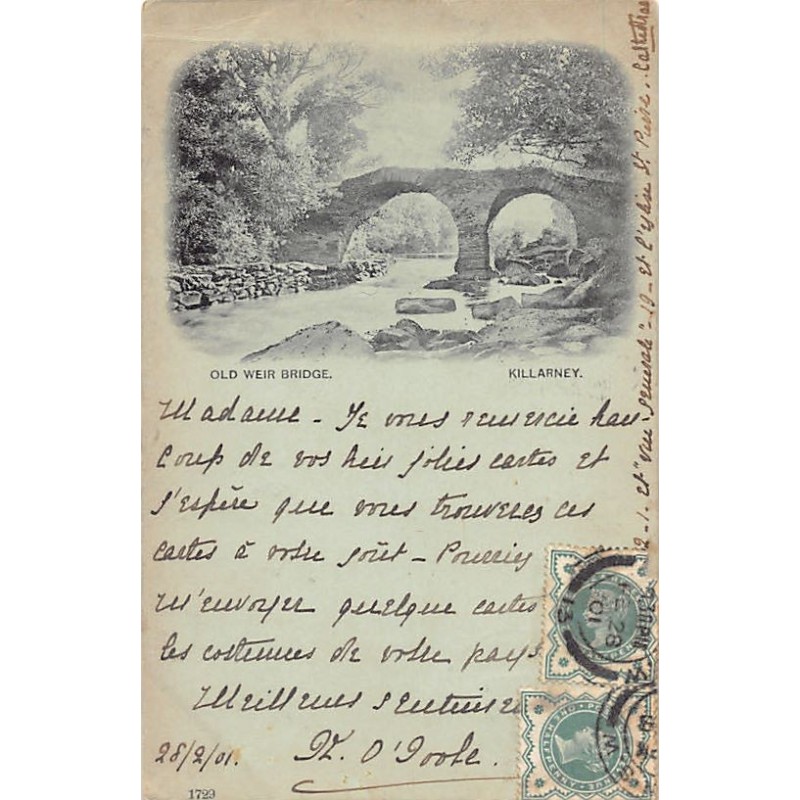 OLD WEIR BRIDGE. KILLARNEY.
Madame - Je vous remercie beau-
coup de vos huit jolies cartes et
j'espère que vous trouverez ces
cartes à votre goût - Pourriez
m'envoyer quelque cartes
les costumes de votre pays
Meilleurs sentimen
28/2/01. O'Toole.
1729
et "vue générale" - 19 - et l'église St. Pierre.
FE 28
01